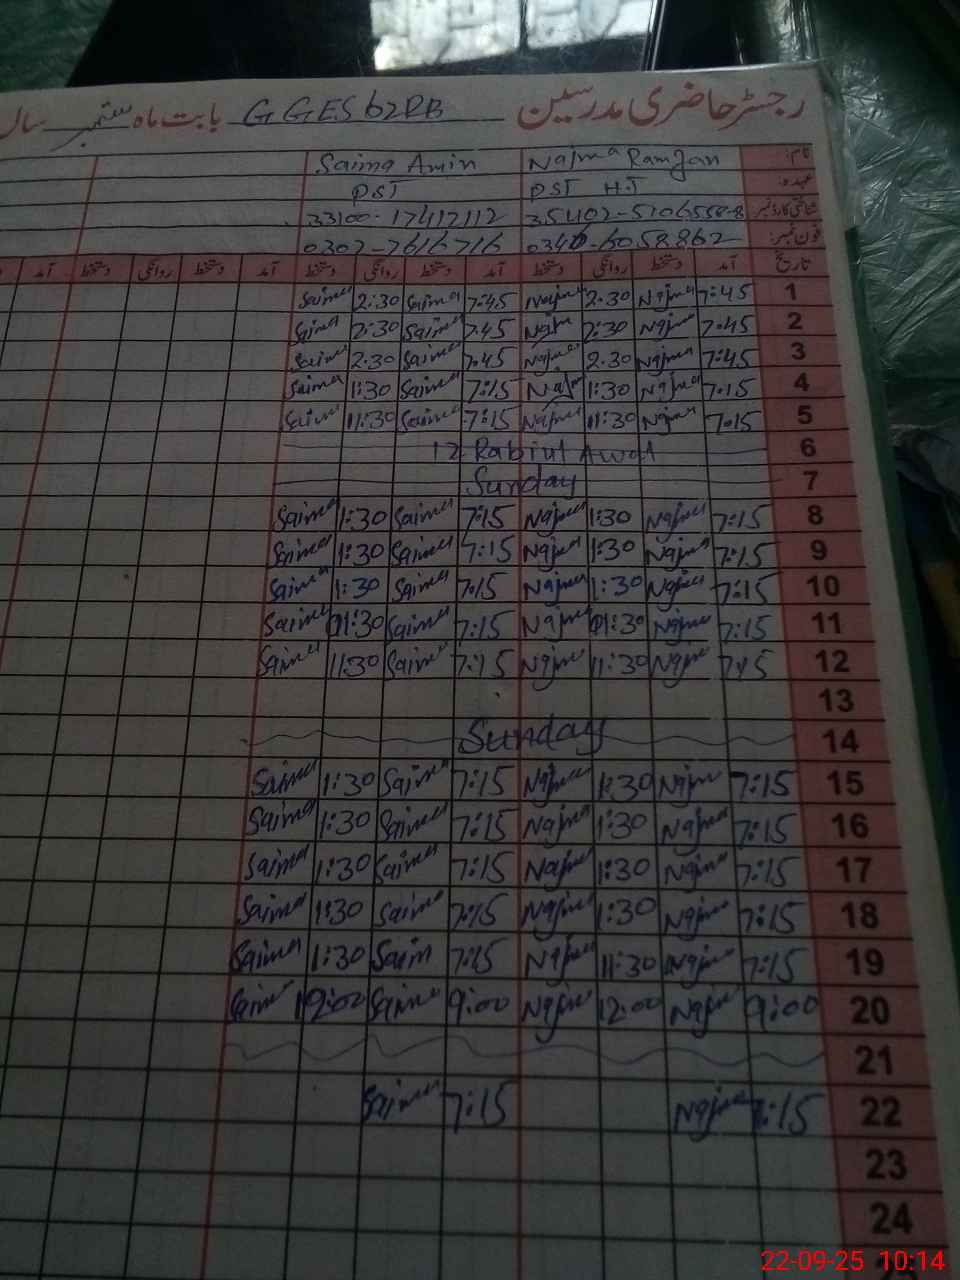 رجسٹر حاضری مدرسین GGES 62RB بابت ماہ ستمبر سال
نام: Najma Ramzan Saima Amin
عہدہ: PST H.T PST
شناختی کارڈ نمبر 33100-17412112
فون نمبر: 0302-7616716
تاریخ آمد دستخط روانگی دستخط آمد دستخط روانگی دستخط آمد دستخط روانگی دستخط آمد
1 7:45 Najma 2:30 Najma 7:45 Saima 2:30 Saima
2 7:45 Najma 2:30 Najma 7:45 Saima 2:30 Saima
3 7:45 Najma 2:30 Najma 7:45 Saima 2:30 Saima
4 7:15 Najma 1:30 Najma 7:15 Saima 1:30 Saima
5 7:15 Najma 11:30 Najma 7:15 Saima 11:30 Saima
6 12 Rabiul Awal
7 Sunday
8 7:15 Najma 1:30 Najma 7:15 Saima 1:30 Saima
9 7:15 Najma 1:30 Najma 7:15 Saima 1:30 Saima
10 7:15 Najma 1:30 Najma 7:15 Saima 1:30 Saima
11 7:15 Najma 1:30 Najma 7:15 Saima 1:30 Saima
12 7:15 Najma 11:30 Najma 7:15 Saima 11:30 Saima
13
14 Sunday
15 7:15 Najma 1:30 Najma 7:15 Saima 1:30 Saima
16 7:15 Najma 1:30 Najma 7:15 Saima 1:30 Saima
17 7:15 Najma 1:30 Najma 7:15 Saima 1:30 Saima
18 7:15 Najma 1:30 Najma 7:15 Saima 1:30 Saima
19 7:15 Najma 11:30 Najma 7:15 Saim 1:30 Saima
20 9:00 Najma 12:00 Najma 9:00 Saima Saima
21
22 7:15 Najma 7:15 Saima
23
24
22-09-25 10:14